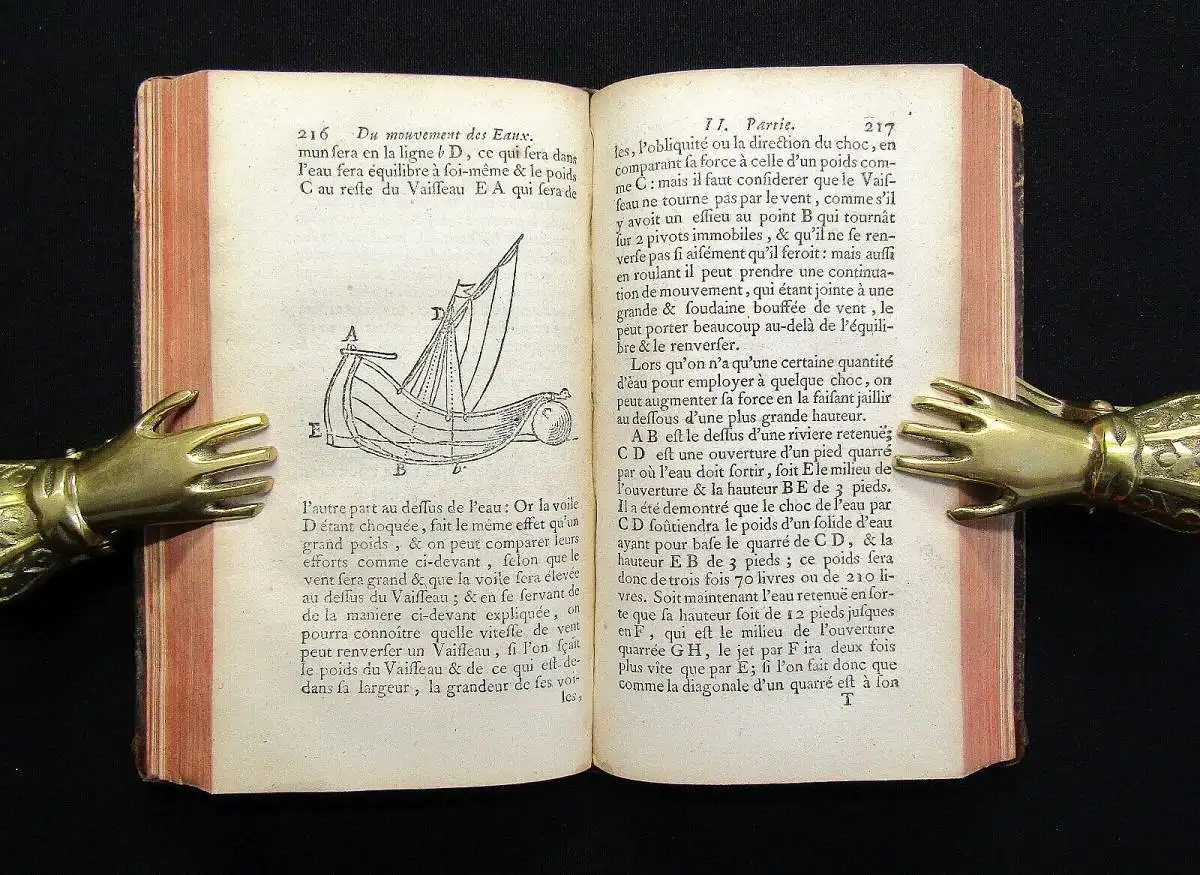 216 Du mouvement des Eaux.
mun ſera en la ligne b D, ce qui ſera dans
l'eau ſera équilibre à ſoi-même & le poids
C au reſte du Vaiſſeau E A qui ſera de
A
D
E
C
B
b
l'autre part au deſſus de l'eau: Or la voile
D étant choquée, fait le même effet qu'un
grand poids, & on peut comparer leurs
efforts comme ci-devant, ſelon que le
vent ſera grand & que la voile ſera élevée
au deſſus du Vaiſſeau; & en ſe ſervant de
de la maniere ci-devant expliquée, on
pourra connoître quelle viteſſe de vent
peut renverſer un Vaiſſeau, ſi l'on ſçait
le poids du Vaiſſeau & de ce qui eſt de-
dans ſa largeur, la grandeur de ſes voi-
les,
II. Partie. 217
les, l'obliquité ou la direction du choc, en
comparant ſa force à celle d'un poids com-
me C: mais il faut conſiderer que le Vaiſ-
ſeau ne tourne pas par le vent, comme s'il
y avoit un eſſieu au point B qui tournât
ſur 2 pivots immobiles, & qu'il ne ſe ren-
verſe pas ſi aiſément qu'il feroit: mais auſſi
en roulant il peut prendre une continua-
tion de mouvement, qui étant jointe à une
grande & ſoudaine bouffée de vent, le
peut porter beaucoup au-delà de l'équili-
bre & le renverſer.
Lors qu'on n'a qu'une certaine quantité
d'éau pour employer à quelque choc, on
peut augmenter ſa force en la faiſant jaillir
au deſſous d'une plus grande hauteur.
A B eſt le deſſus d'une riviere retenuë;
C D eſt une ouverture d'un pied quarré
par où l'eau doit ſortir, ſoit E le milieu de
l'ouverture & la hauteur B E de 3 pieds.
Il a été démontré que le choc de l'eau par
C D ſoûtiendra le poids d'un ſolide d'eau
ayant pour baſe le quarré de C D, & la
hauteur E B de 3 pieds; ce poids ſera
donc de trois fois 70 livres ou de 210 li-
vres. Soit maintenant l'eau retenuë en ſor-
te que ſa hauteur ſoit de 12 pieds juſques
en F, qui eſt le milieu de l'ouverture
quarrée G H, le jet par F ira deux fois
plus vîte que par E; ſi l'on fait donc que
comme la diagonale d'un quarré eſt à ſon
T